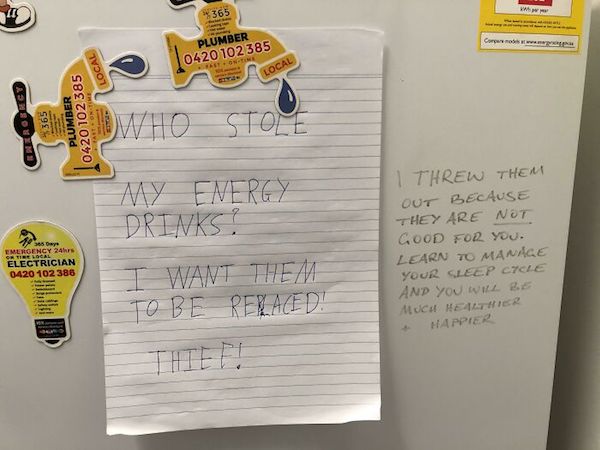 365
PLUMBER
0420 102 385
FAST • ON-TIME
LOCAL
EMERGENCY
365
PLUMBER
0420 102 385
FAST • ON-TIME
LOCAL
365 Days
EMERGENCY 24hrs
ON TIME LOCAL
ELECTRICIAN
0420 102 386
WHO STOLE
MY ENERGY
DRINKS?
I WANT THEM
TO BE REPLACED!
THIEF!
I THREW THEM
OUT BECAUSE
THEY ARE NOT
GOOD FOR YOU.
LEARN TO MANAGE
YOUR SLEEP CYCLE
AND YOU WILL BE
MUCH HEALTHIER
+ HAPPIER
kWh per year
Compare models at www.energyrating.gov.au